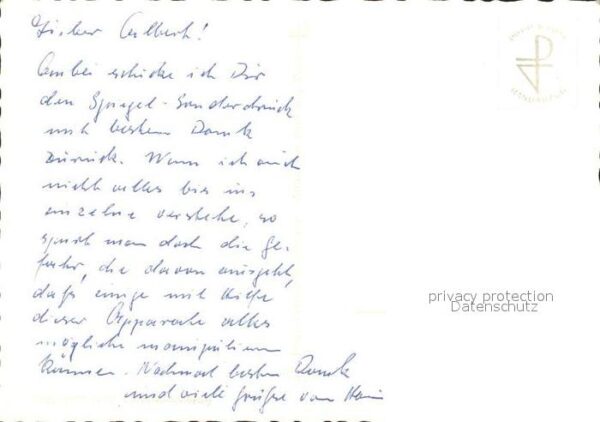 Lieber Albert!
Anbei schicke ich Dir
den Spiegel-Sonderdruck
mit bestem Dank
zurück. Wenn ich auch
nicht alles bis ins
einzelne verstehe, so
spürt man doch die Ge-
fahr, die davon ausgeht,
daß einige mit Hilfe
dieser Apparate alles
mögliche manipulieren
können. Nochmal besten Dank
und viele Grüße von
privacy protection
Datenschutz